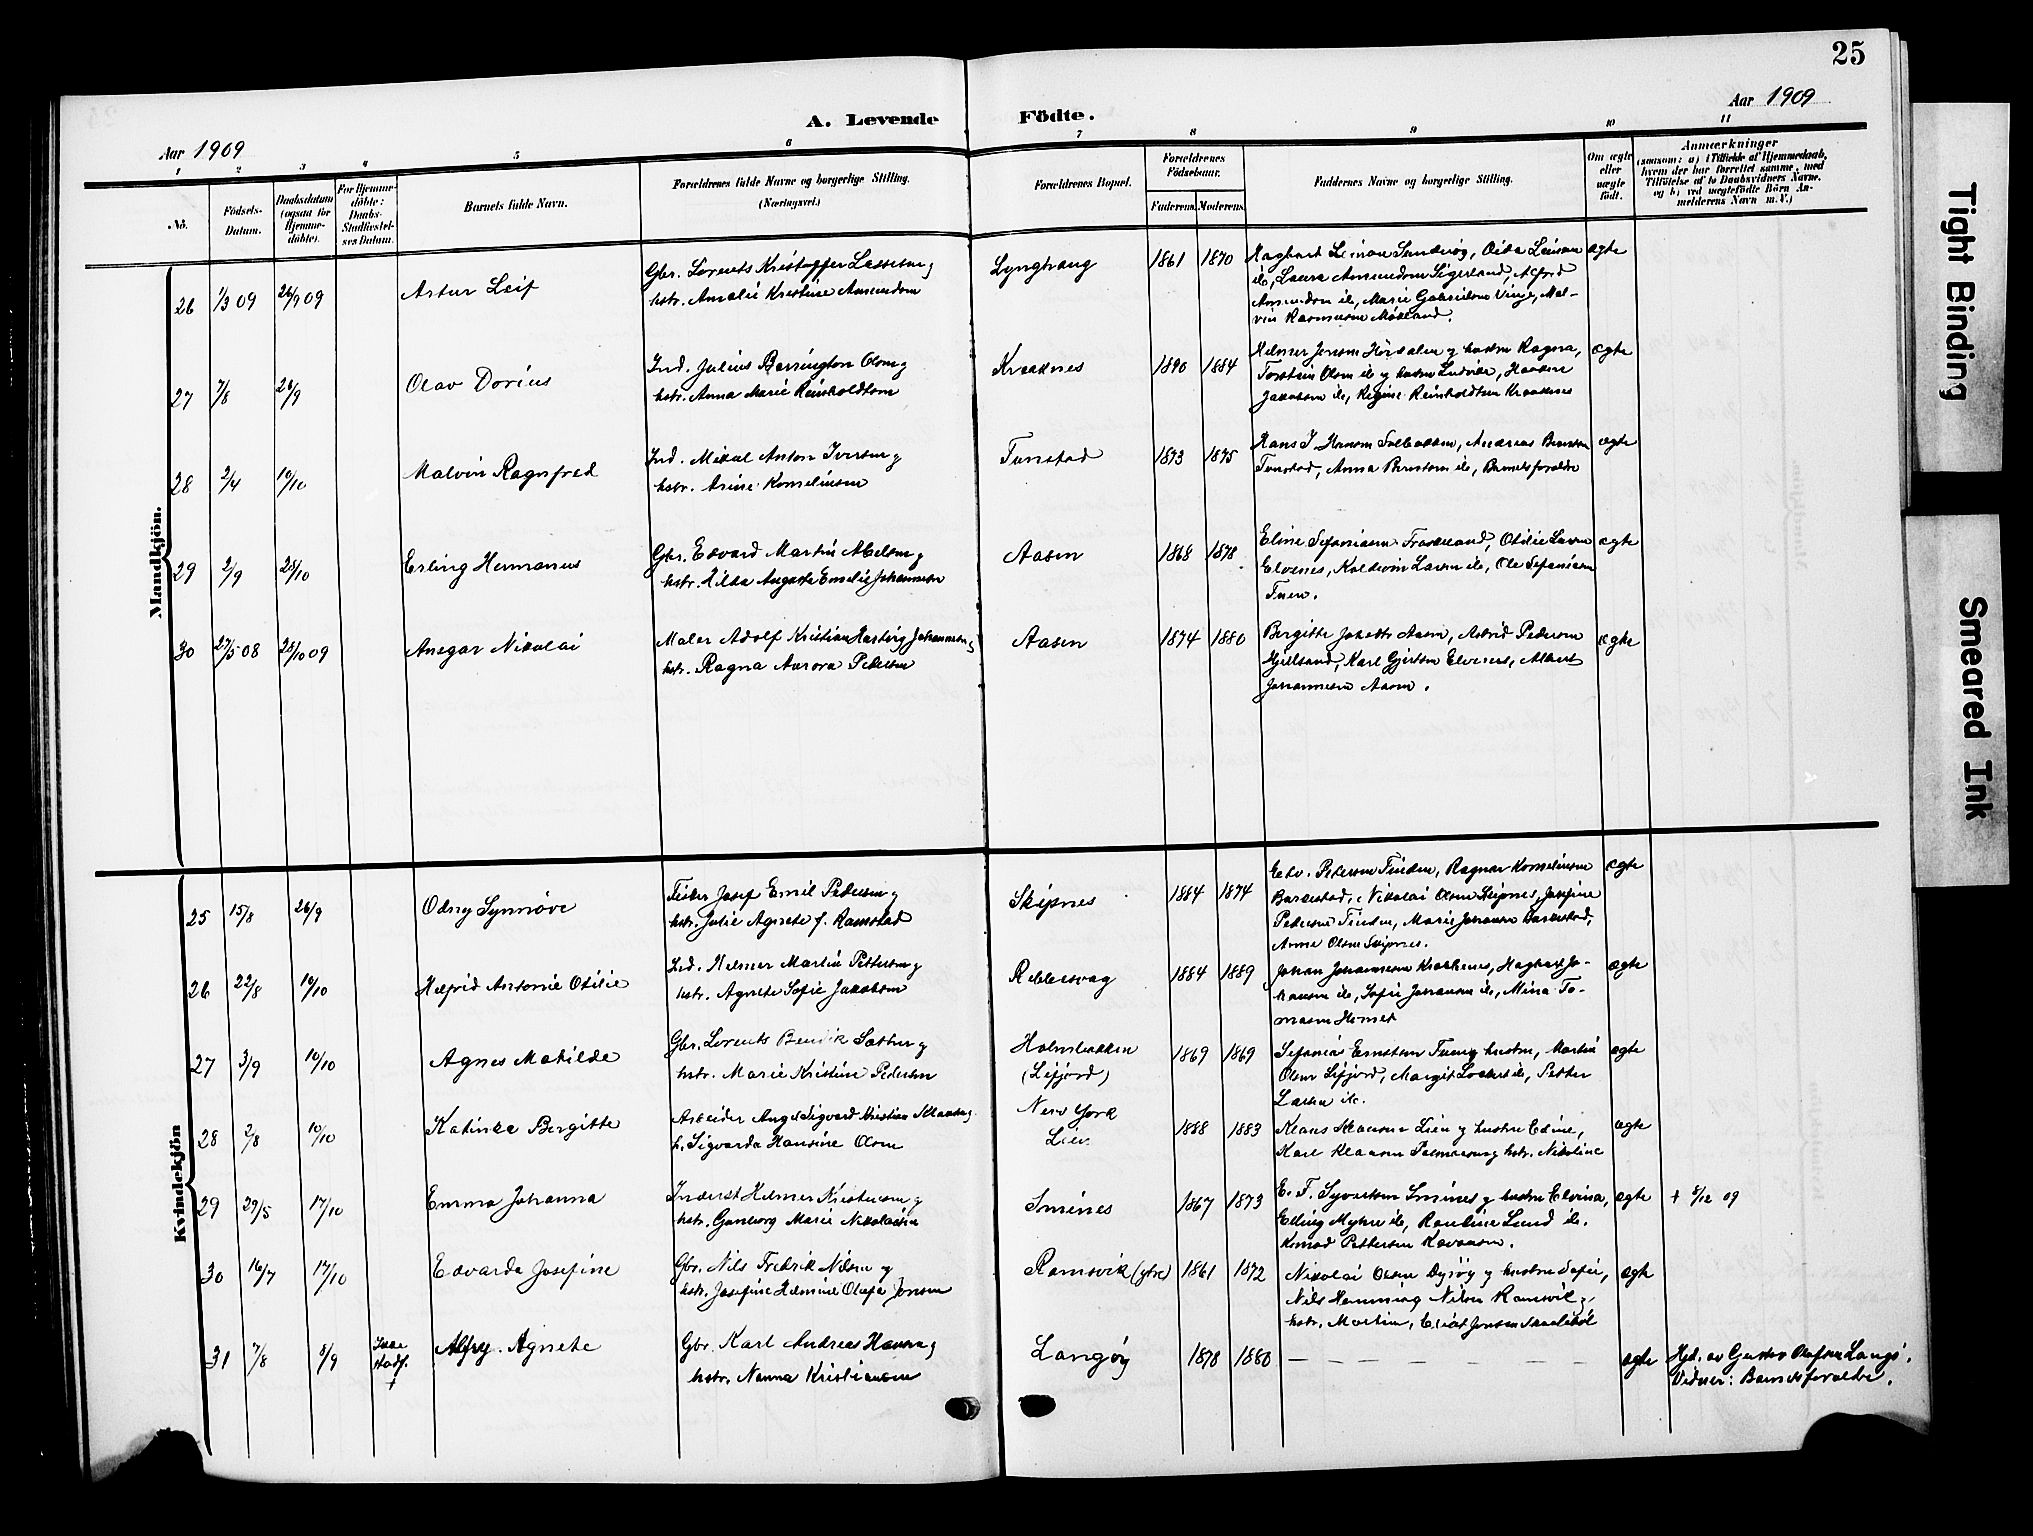 25
Aar 1909
Aar 1909
A. Levende Födte.
1 2 3 4 5 6 7 8 9 10 11
No.
Födsels-
Datum.
Daabsdatum
(ogsaa for
Hjemme-
döbte).
For Hjemme-
döbte:
Daabs-
Stadfæstel-
ses Datum.
Barnets fulde Navn.
Forældrenes fulde Navne og borgerlige Stilling.
(Næringsvei.)
Forældrenes Bopæl.
Forældrenes
Födselsaar.
Faderens. Moderens.
Faddernes Navne og borgerlige Stilling.
Om ægte
eller
uægte
födt.
Anmærkninger
(saasom: a) i Tilfælde af Hjemmedaab,
hvem der har forrettet samme, med
Tilföielse af to Daabsvidners Navne.
og b) ved uægtefödte Börn An-
melderens Navn m. V.)
Mandkjön.
26 1/3 09 26/9 09 Artur Leif
Gbr. Lorents Kristoffer Lassesen og
hstr. Amalie Kristine Amundsen
Lynghaug 1861 1870
Hagbart Simonsen Sanderøy, Oida Simonsen ægte
ib, Laura Amundsen Sigerland, Alfred
Amundsen ib, Marie Gabrielsen Vinje, Mal-
vin Rasmussen Mökland.
27 7/8 26/9 Olav Dorius
Ind. Julius Berrington Olsen og
hstr. Anna Marie Reinholdtsen
Kraaknes 1890 1884
Helmer Jensen Hörsdalen og hustru Ragna, ægte
Torstein Olsen ib og hustru Ludvikke, Hansine
Jakobsen ib, Regine Reinholdtsen Kraaknes
28 2/4 10/10 Malvin Ragnfred
Ind. Mikal Anton Iversen og
hstr. Arine Kornelinsen
Tunstad 1873 1875
Hans J. Hansen Solbakken, Andreas Berntsen ægte
Tunstad, Anna Berntsen ib, Barnets forældre
29 2/9 28/10 Erling Hermanus
Gbr. Edvard Martin Abelsen og
hstr. Hilda Augusta Emelie Johannesen
Aasen 1868 1878
Eline Sefaniasen Fraskeland, Otilie Larsen ægte
Elvenes, Kaldevin Larsen ib, Ole Sefaniasen
Tuen.
30 27/5 08 28/10 09 Ansgar Nikolai
Maler Adolf Kristian Hartvig Johannesen og
hstr. Ragna Aurora Pedersen
Aasen 1874 1880
Bergitte Jakobsen Aasen, Astrid Pedersen ægte
Gjellsand, Karl Gjertsen Elvenes, Albert
Johannesen Aasen.
Kvindekjön
25 15/8 26/9 Odny Synnöve
Fisker Josef Emil Pedersen og
hstr. Julie Agnete f. Ramstad
Skipnes 1884 1874
Edv. Pedersen Tinden, Ragnar Kornelinsen ægte
Barkestad, Nikolai Olsen Skipnes, Josefine
Pedersen Tinden, Marie Johansen Barkestad,
Anne Olsen Skipnes.
26 22/8 10/10 Helfrid Antonie Otilie
Ind. Helmer Martin Pettersen og
hstr. Agnete Sofie Jakobsen
Rebbersvag 1884 1889
Johan Johannesen Kraaknes, Hagbart Jo- ægte
hansen ib, Sofie Johansen ib, Mina To-
masen Himset
27 3/9 10/10 Agnes Matilde
Gbr. Lorents Bendik Sætter og
hstr. Marie Kristine Pedersen
Holmbakken
(Lifjord)
1869 1869
Sefanias Ernstsen Tuen og hustru, Martin ægte
Olsen Lifjord, Margit Lockert ib, Petter
Larsen ib.
28 2/8 10/10 Katinka Bergitte
Arbeider Angel Sigvard Kristian Klausen og
h. Sigvarda Hansine Olsen
New York
Lien
1888 1883
Klaus Klausen Lien og hustru Edine, ægte
Karl Klausen Palmarsen og hstr. Nikoline
29 29/5 17/10 Emma Johanna
Inderst Helmer Kristensen og
hstr. Gunborg Marie Nikolaisen
Smines 1867 1873
E. F. Syvertsen Smines og hustru Elvina, ægte + 5/12 09
Elling Myhre ib, Rauline Lund ib.
Konrad Pettersen Kavaasen.
30 16/7 17/10 Edvarda Josefine
Gbr. Nils Fredrik Nilsen og
hstr. Josefine Helmine Olufa Jonsen
Ramsvik (ytre) 1861 1872
Nikolai Olsen Dyröy og hustru Sofie, ægte
Nils Hemming Nilsen Ramsvik og
hstr. Martine, Elias Jensen Skaaleböl
31 7/8 8/9
Ikke
stadf.
+
Alfry. Agnete
Gbr. Karl Andreas Hansen og
hstr. Nanna Kristiansen
Langöy 1878 1880 — — — — — — — ægte
Hjd. av Gustav Olufsen Langö.
Vidner: Barnets forældre.
Tight Binding
Smeared Ink